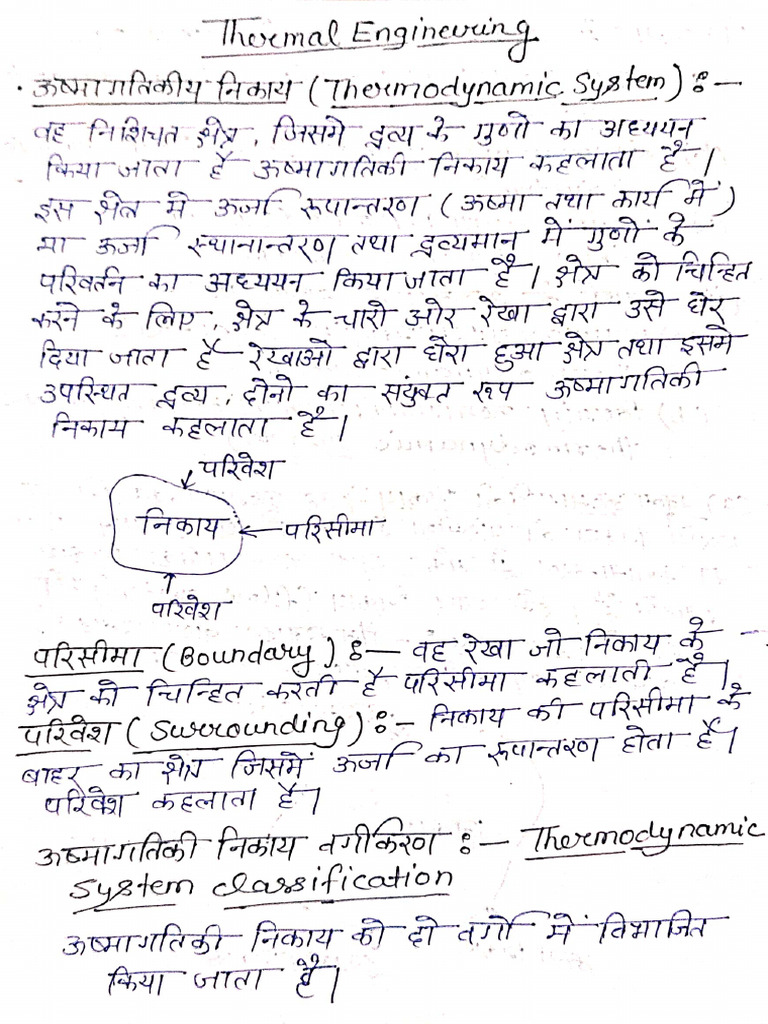 Thermal Engineering
• ऊष्मागतिकीय निकाय (Thermodynamic System) :-
वह निश्चित क्षेत्र, जिसमे द्रव्य के गुणो का अध्ययन
किया जाता है ऊष्मागतिकी निकाय कहलाता है।
इस क्षेत्र मे ऊर्जा रूपान्तरण (ऊष्मा तथा कार्य में)
या ऊर्जा स्थानान्तरण तथा द्रव्यमान में गुणों के
परिवर्तन का अध्ययन किया जाता है। क्षेत्र को चिन्हित
करने के लिए, क्षेत्र के चारो ओर रेखा द्वारा उसे घेर
दिया जाता है रेखाओ द्वारा घेरा हुआ क्षेत्र तथा इसमे
उपस्थित द्रव्य, दोनो का संयुक्त रूप ऊष्मागतिकी
निकाय कहलाता है।
परिवेश
निकाय ← परिसीमा
परिवेश
परिसीमा (Boundary) :- वह रेखा जो निकाय के
क्षेत्र को चिन्हित करती है परिसीमा कहलाती है।
परिवेश (Surrounding) :- निकाय की परिसीमा के
बाहर का क्षेत्र जिसमें ऊर्जा का रूपान्तरण होता है।
परिवेश कहलाता है।
ऊष्मागतिकी निकाय वर्गीकरण :- Thermodynamic
System classification
ऊष्मागतिकी निकाय को दो वर्गो में विभाजित
किया जाता है।